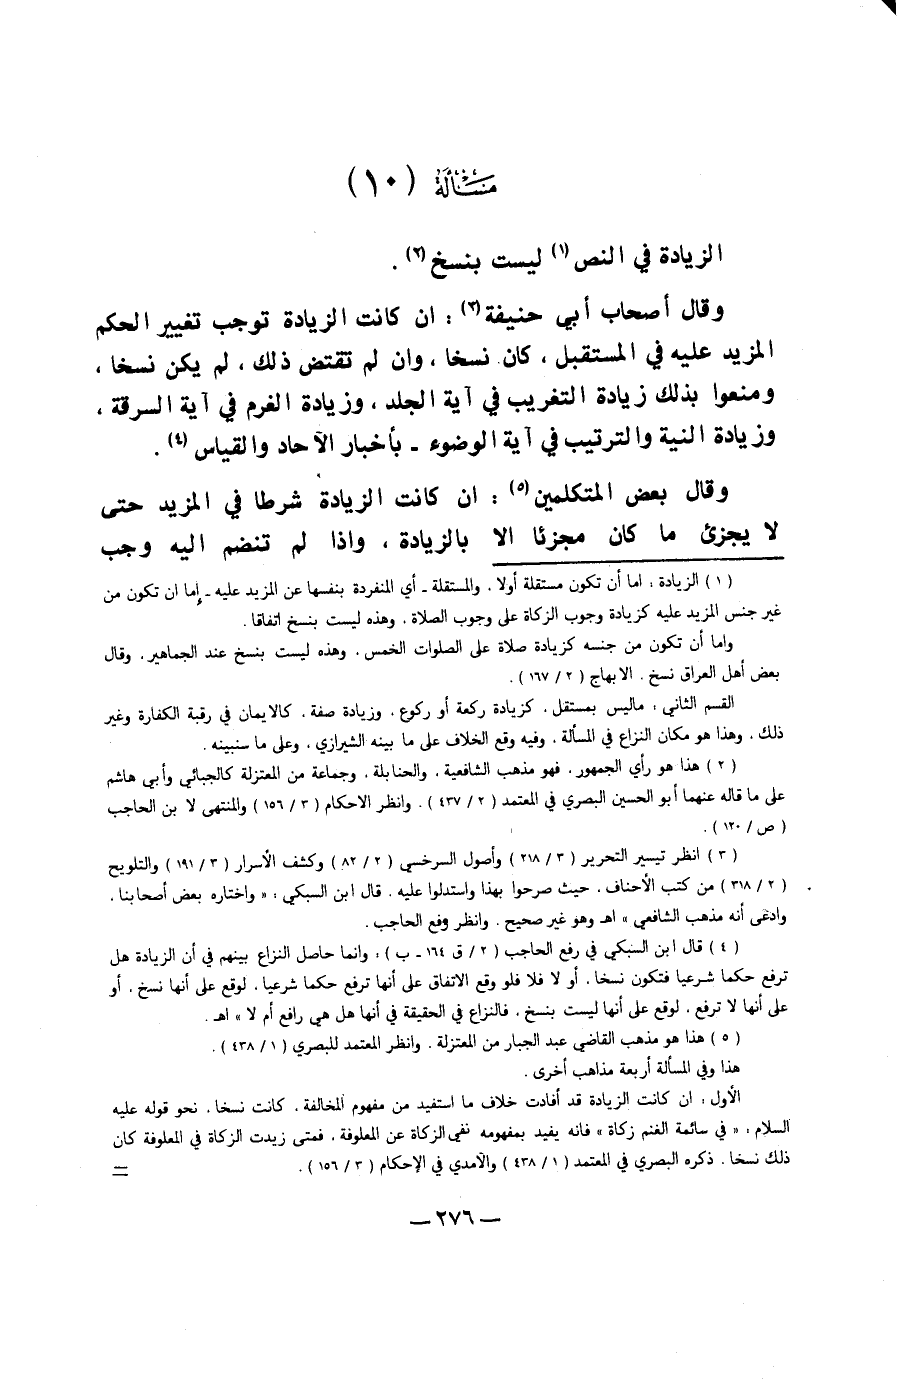 مسألة (١٠)
الزيادة في النص(١) ليست بنسخ(٢) .
وقال أصحاب أبي حنيفة(٣) : ان كانت الزيادة توجب تغيير الحكم
المزيد عليه في المستقبل ، كان نسخا ، وان لم تقتض ذلك ، لم يكن نسخا ،
ومنعوا بذلك زيادة التغريب في آية الجلد ، وزيادة الغرم في آية السرقة ،
وزيادة النية والترتيب في آية الوضوء ـ بأخبار الآحاد والقياس(٤) .
وقال بعض المتكلمين(٥) : ان كانت الزيادة شرطا في المزيد حتى
لا يجزئ ما كان مجزئا الا بالزيادة ، واذا لم تنضم اليه وجب
(١) الزيادة : اما أن تكون مستقلة أولا . والمستقلة ـ أي المنفردة بنفسها عن المزيد عليه ـ إما ان تكون من
غير جنس المزيد عليه كزيادة وجوب الزكاة على وجوب الصلاة . وهذه ليست بنسخ اتفاقا .
واما أن تكون من جنسه كزيادة صلاة على الصلوات الخمس . وهذه ليست بنسخ عند الجماهير . وقال
بعض أهل العراق نسخ . الابهاج (٢ / ١٦٧) .
القسم الثاني : ماليس بمستقل . كزيادة ركعة أو ركوع . وزيادة صفة . كالايمان في رقبة الكفارة وغير
ذلك . وهذا هو مكان النزاع في المسألة . وفيه وقع الخلاف على ما بينه الشيرازي . وعلى ما سنبينه .
(٢) هذا هو رأي الجمهور . فهو مذهب الشافعية . والحنابلة . وجماعة من المعتزلة كالجبائي وأبي هاشم
على ما قاله عنهما أبو الحسين البصري في المعتمد (٢ / ٤٣٧) . وانظر الاحكام (٣ / ١٥٦) والمنتهى لا بن الحاجب
(ص / ١٢٠) .
(٣) انظر تيسير التحرير (٣ / ٢١٨) وأصول السرخسي (٢ / ٨٢) وكشف الأسرار (٣ / ١٩١) والتلويح
(٢ / ٣١٨) من كتب الأحناف . حيث صرحوا بهذا واستدلوا عليه . قال ابن السبكي : « واختاره بعض أصحابنا .
وادعى أنه مذهب الشافعي » اهـ وهو غير صحيح . وانظر وفع الحاجب .
(٤) قال ابن السبكي في رفع الحاجب (٢ / ق ١٦٤ ـ ب) : وانما حاصل النزاع بينهم في أن الزيادة هل
ترفع حكما شرعيا فتكون نسخا . أو لا فلا فلو وقع الاتفاق على أنها ترفع حكما شرعيا . لوقع على أنها نسخ . أو
على أنها لا ترفع . لوقع على أنها ليست بنسخ . فالنزاع في الحقيقة في أنها هل هي رافع أم لا » اهـ .
(٥) هذا هو مذهب القاضي عبد الجبار من المعتزلة . وانظر المعتمد للبصري (١ / ٤٣٨) .
هذا وفي المسألة أربعة مذاهب أخرى .
الأول : ان كانت الزيادة قد أفادت خلاف ما استفيد من مفهوم المخالفة . كانت نسخا . نحو قوله عليه
السلام : « في سائمة الغنم زكاة » فانه يفيد بمفهومه نفي الزكاة عن المعلوفة . فمتى زيدت الزكاة في المعلوفة كان
ذلك نسخا . ذكره البصري في المعتمد (١ / ٤٣٨) والآمدي في الإحكام (٣ / ١٥٦) . =
— ٢٧٦ —